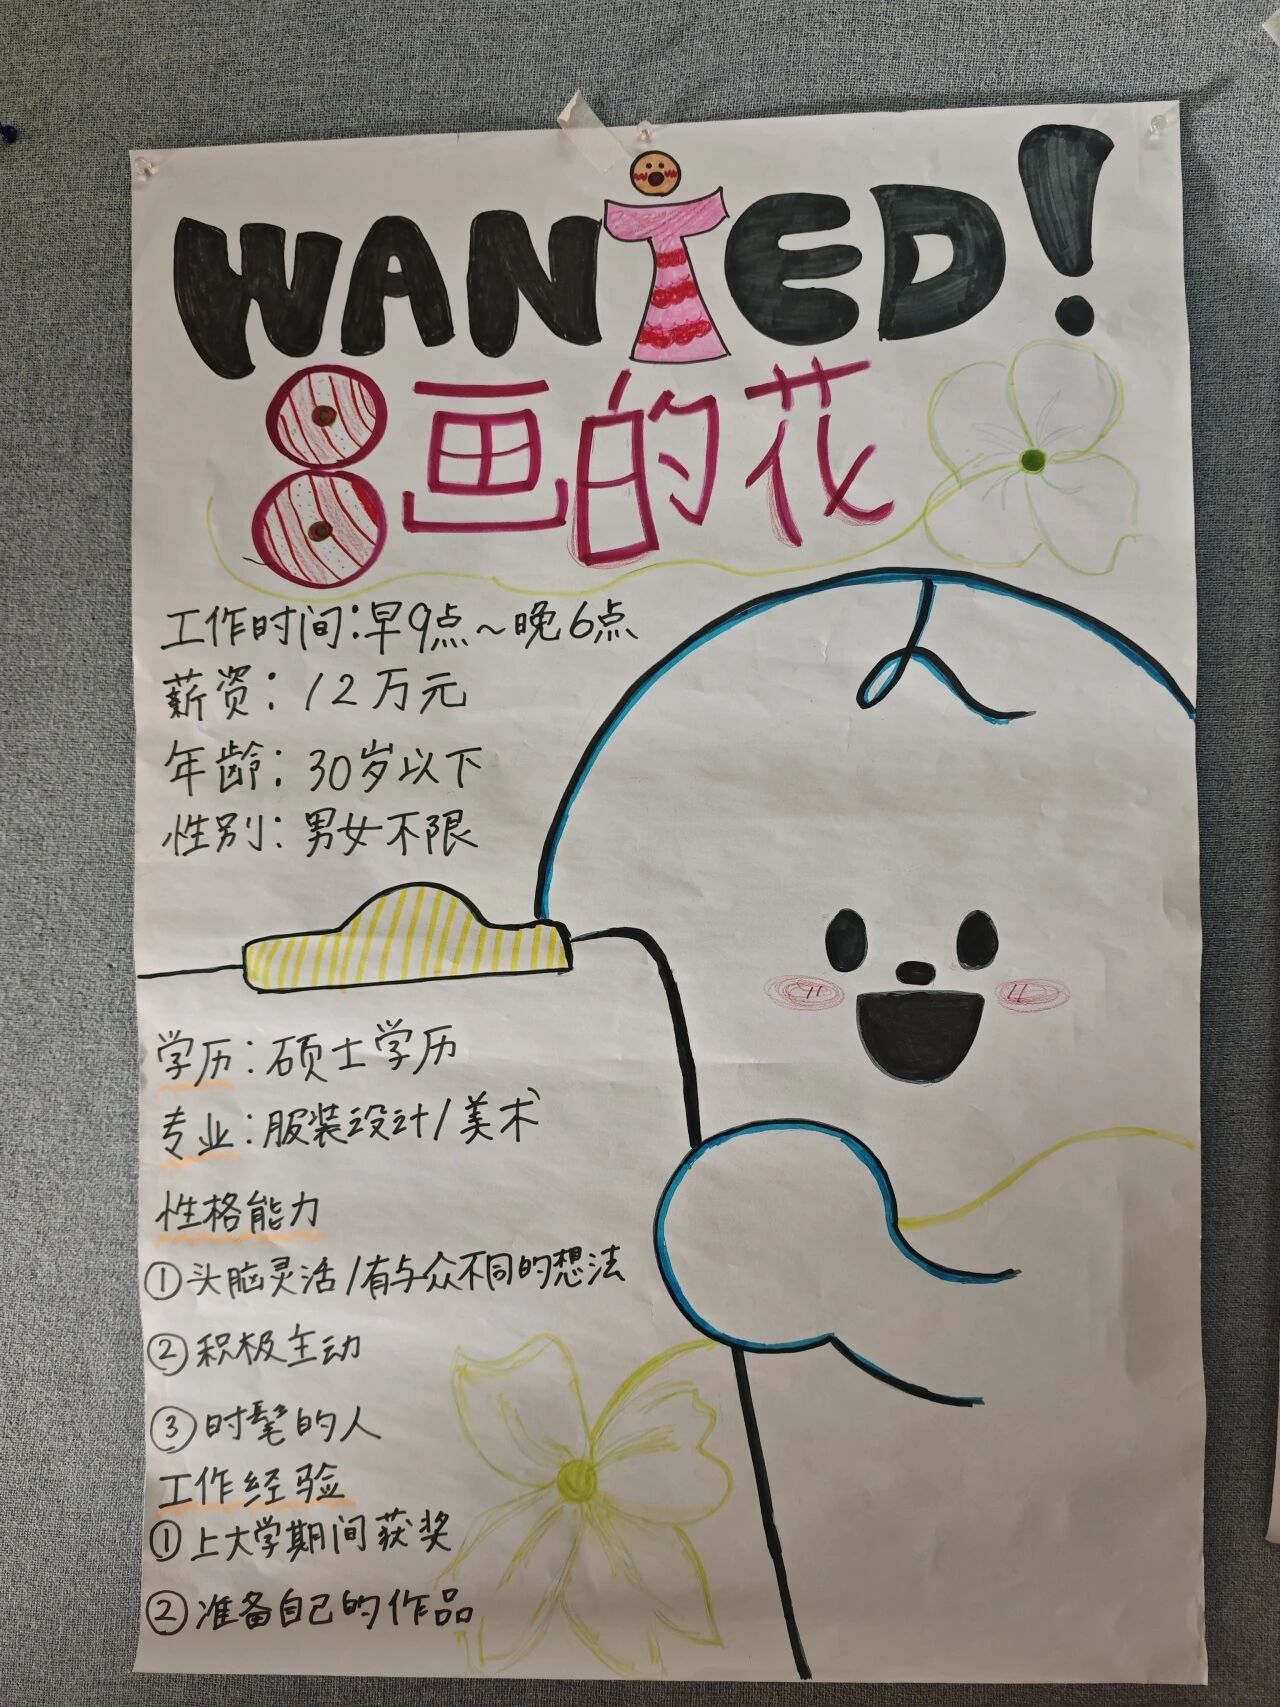 WANTED!
8画的花
工作时间:早9点~晚6点
薪资:12万元
年龄:30岁以下
性别:男女不限
学历:硕士学历
专业:服装设计/美术
性格能力
①头脑灵活/有与众不同的想法
②积极主动
③时髦的人
工作经验
①上大学期间获奖
②准备自己的作品